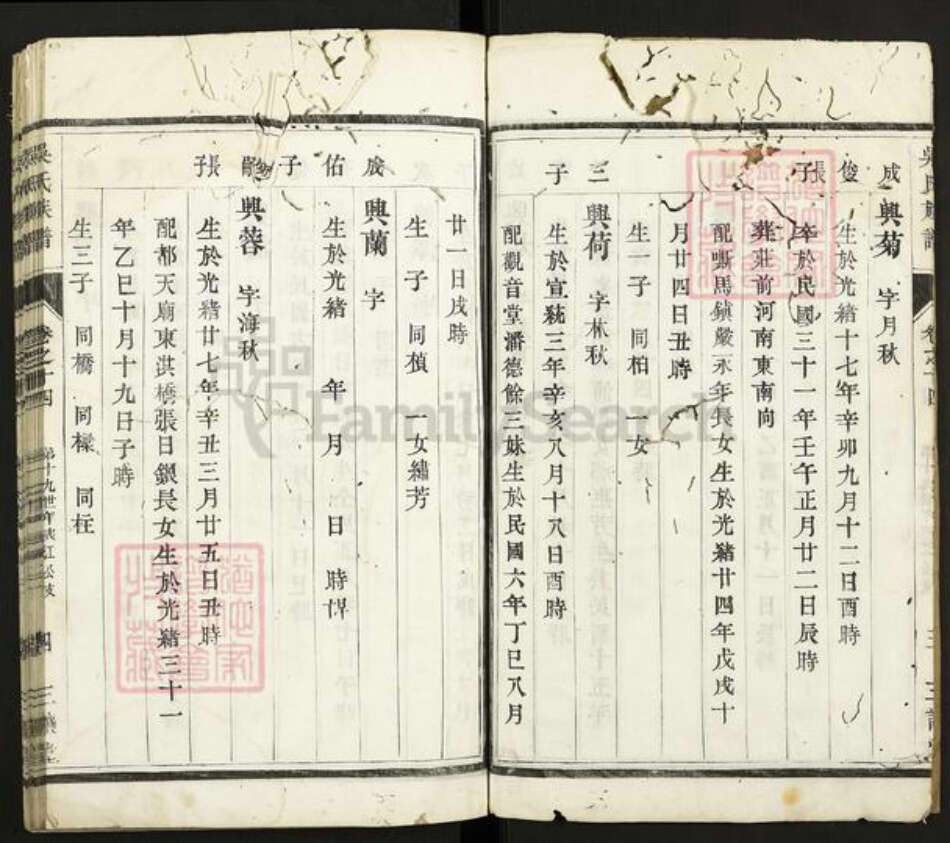 成俊張子
興菊 字月秋
生於光緒十七年辛卯九月十二日酉時
卒於民國三十一年壬午正月廿二日辰時
葬莊前河南東南向
配嘶馬鎮嚴永年長女生於光緒廿四年戊戌十
月廿四日丑時
生一子 同柏 一女
三子
興荷 字林秋
生於宣統三年辛亥八月十八日酉時
配觀音堂潘德餘三妹生於民國六年丁巳八月
廿一日戌時
生一子 同楨 一女繡芳
成佑子
興蘭 字
生於光緒 年 月 日 時
張
興蓉 字海秋
生於光緒廿七年辛丑三月廿五日丑時
配都天廟東洪橋張日銀長女生於光緒三十一
年乙巳十月十九日子時
生三子 同橋 同樑 同柱
吳氏族譜 卷之十四 四
FamilySearch